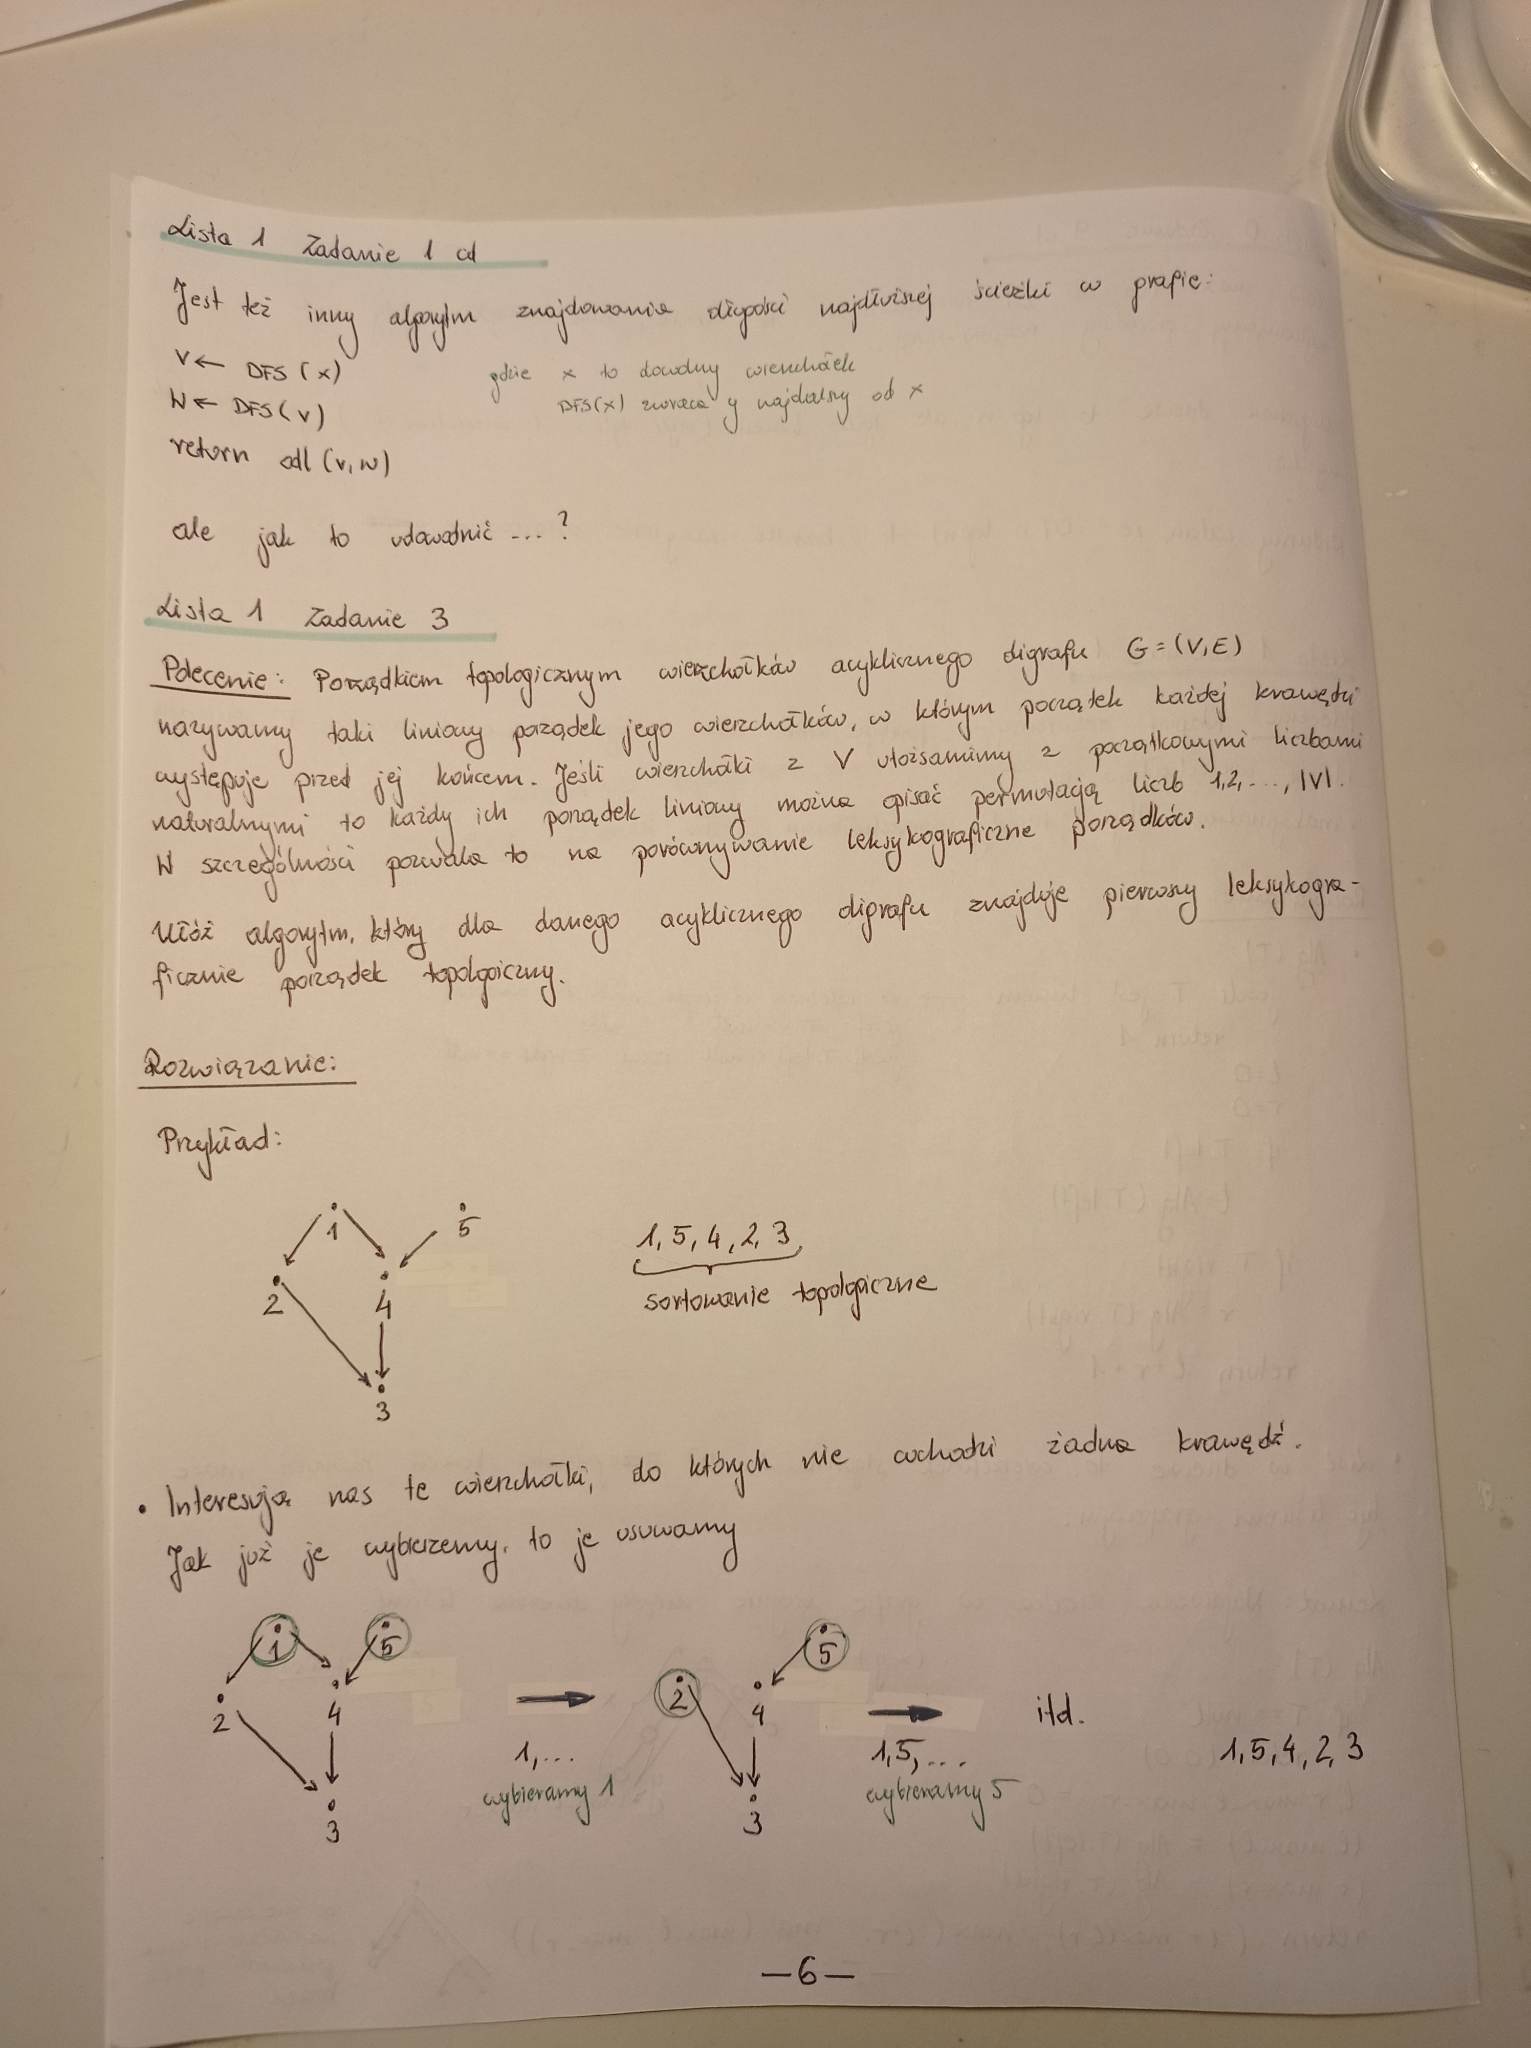 Lista 1 Zadanie 1 cd
Jest też inny algorytm znajdowania długości najdłuższej ścieżki w grafie:
V ← DFS (x)
gdzie x to dowolny wierzchołek
W ← DFS (v)
DFS(x) zwraca y najdalszy od x
return odl (v, w)
ale jak to udowodnić ...?
Lista 1 Zadanie 3
Polecenie: Porządkiem topologicznym wierzchołków acyklicznego digrafu G = (V, E)
nazywamy taki liniowy porządek jego wierzchołków, w którym początek każdej krawędzi
występuje przed jej końcem. Jeśli wierzchołki z V utożsamimy z początkowymi liczbami
naturalnymi to każdy ich porządek liniowy można opisać permutacją liczb 1,2, ..., |V|.
W szczególności pozwala to na porównywanie leksykograficzne porządków.
Ułóż algorytm, który dla danego acyklicznego digrafu znajduje pierwszy leksykogra-
ficznie porządek topolgoiczny.
Rozwiązanie:
Przykład:
1
5
2
4
3
1, 5, 4, 2, 3
sortowanie topolgoiczne
• Interesują nas te wierzchołki, do których nie wchodzi żadna krawędź.
Jak już je wybierzemy, to je usuwamy
1
5
2
4
3
1, ...
wybieramy 1
5
2
4
3
1, 5, ...
wybieramy 5
itd.
1, 5, 4, 2, 3
— 6 —